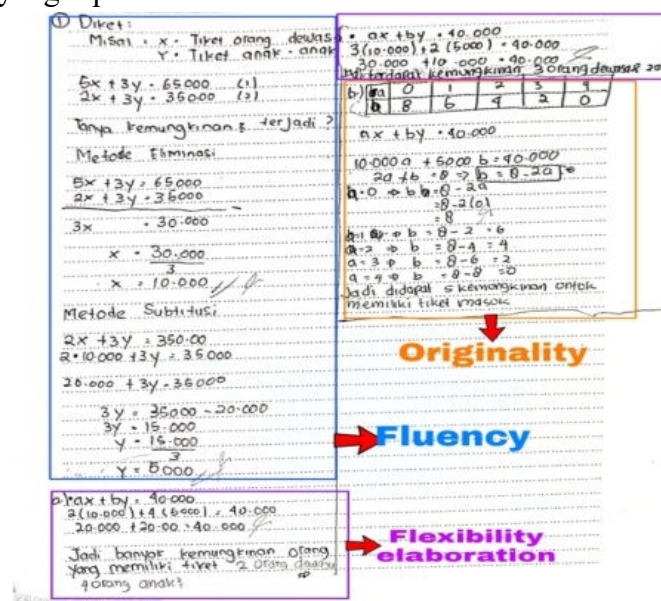 ① Diket:
Misal . x = Tiket orang dewasa
Y = Tiket anak - anak
5x + 3y = 65000 (1)
2x + 3y = 35000 (2)
Tanya kemungkinan terjadi ?
Metode Eliminasi
5x + 3y = 65000
2x + 3y = 35000
3x = 30.000
x = 30.000
3
x = 10.000
Metode Subtitusi
2x + 3y = 350.00
2 • 10.000 + 3y = 35000
20.000 + 3y = 35000
3y = 35000 - 20.000
3y = 15.000
y = 15.000
3
y = 5000
a) • ax + by = 40.000
2 (10.000) + 4 (5000) = 40.000
20.000 + 20.00 = 40.000
Jadi banyak kemungkinan orang
yang memiliki tiket 2 orang
4 orang anak
• ax + by = 40.000
3 (10.000) + 2 (5000) = 40.000
30.000 + 10.000 = 40.000
terdapat kemungkinan 3 orang dewasa
b) a 0 1 2 3 4
b 8 6 4 2 0
ax + by = 40.000
10.000 a + 5000 b = 40.000
2a + b = 8 => b = 8 - 2a
a = 0 => b = 8 - 2a
= 8 - 2(0)
= 8
b = 8 - 2 = 6
a = 2 => b = 8 - 4 = 4
a = 3 => b = 8 - 6 = 2
a = 4 => b = 8 - 8 = 0
Jadi didapat 5 kemungkinan untuk
memiliki tiket masuk
Originality
Fluency
Flexibility
elaboration